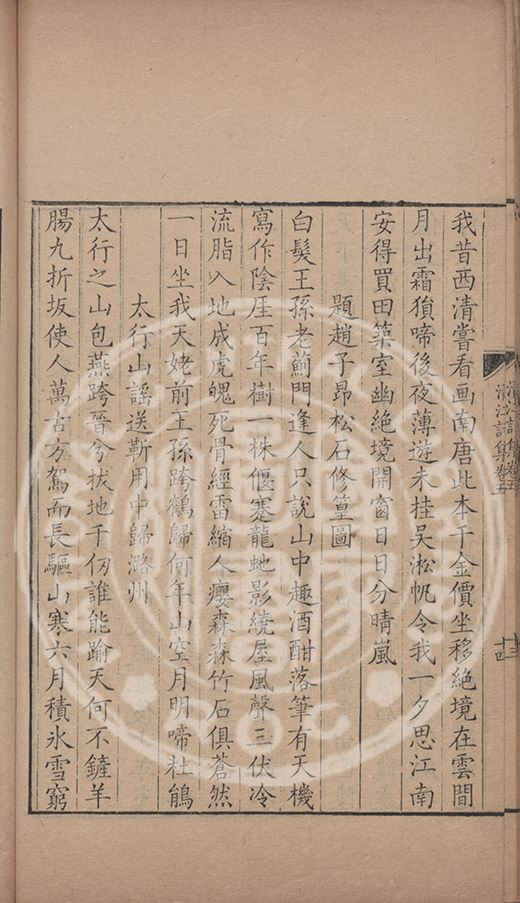 我昔西清嘗看画南唐此本千金價坐移絶境在雲間
月出霜猿啼後夜薄遊未挂吳淞帆令我一夕思江南
安得買田築室幽絶境開窗日日分晴嵐
題趙子昂松石修篁圖
白髮王孫老薊門逢人只說山中趣酒酣落筆有天機
寫作陰厓百年樹一株偃蹇龍虵影繞屋風聲三伏冷
流脂入地成虎魄死骨經雷縮人癭森森竹石俱蒼然
一日坐我天姥前王孫跨鶴歸何年山空月明啼杜鵑
太行山謡送靳用中歸潞州
太行之山包燕跨晉兮拔地千仞誰能踰天何不鏟羊
腸九折坂使人萬古方駕而長驅山寒六月積氷雪窮
清江詩集卷五